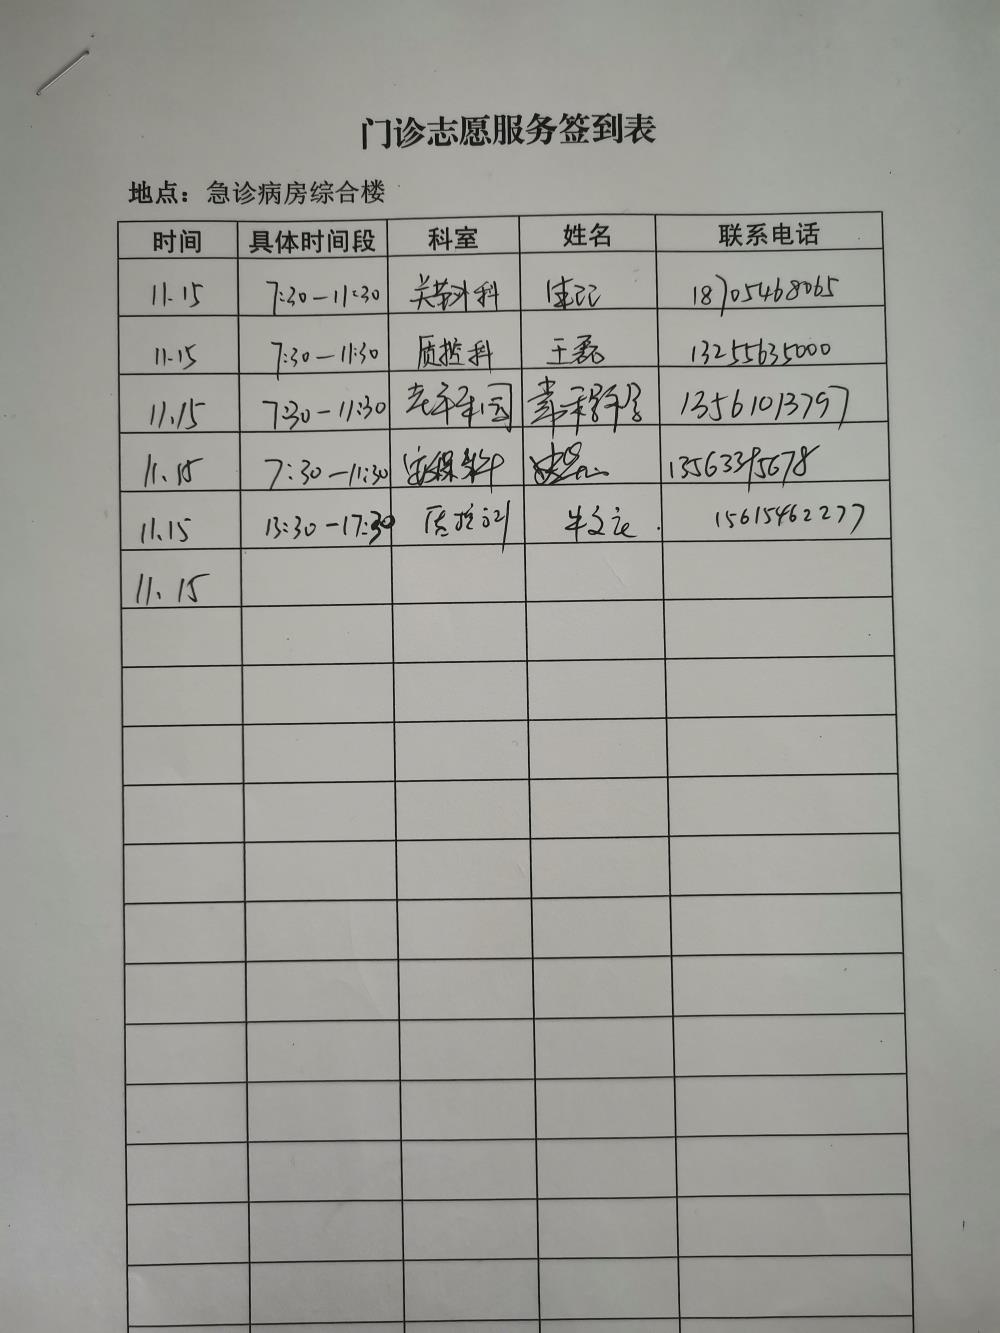 门诊志愿服务签到表
地点：急诊病房综合楼
时间 具体时间段 科室 姓名 联系电话
11.15 7:30-11:30 关节外科 18705468065
11.15 7:30-11:30 质控科 王磊 13255635000
11.15 7:30-11:30 13561013797
11.15 7:30-11:30 安保科 13563395678
11.15 13:30-17:30 质控科 牛文 15615462277
11.15